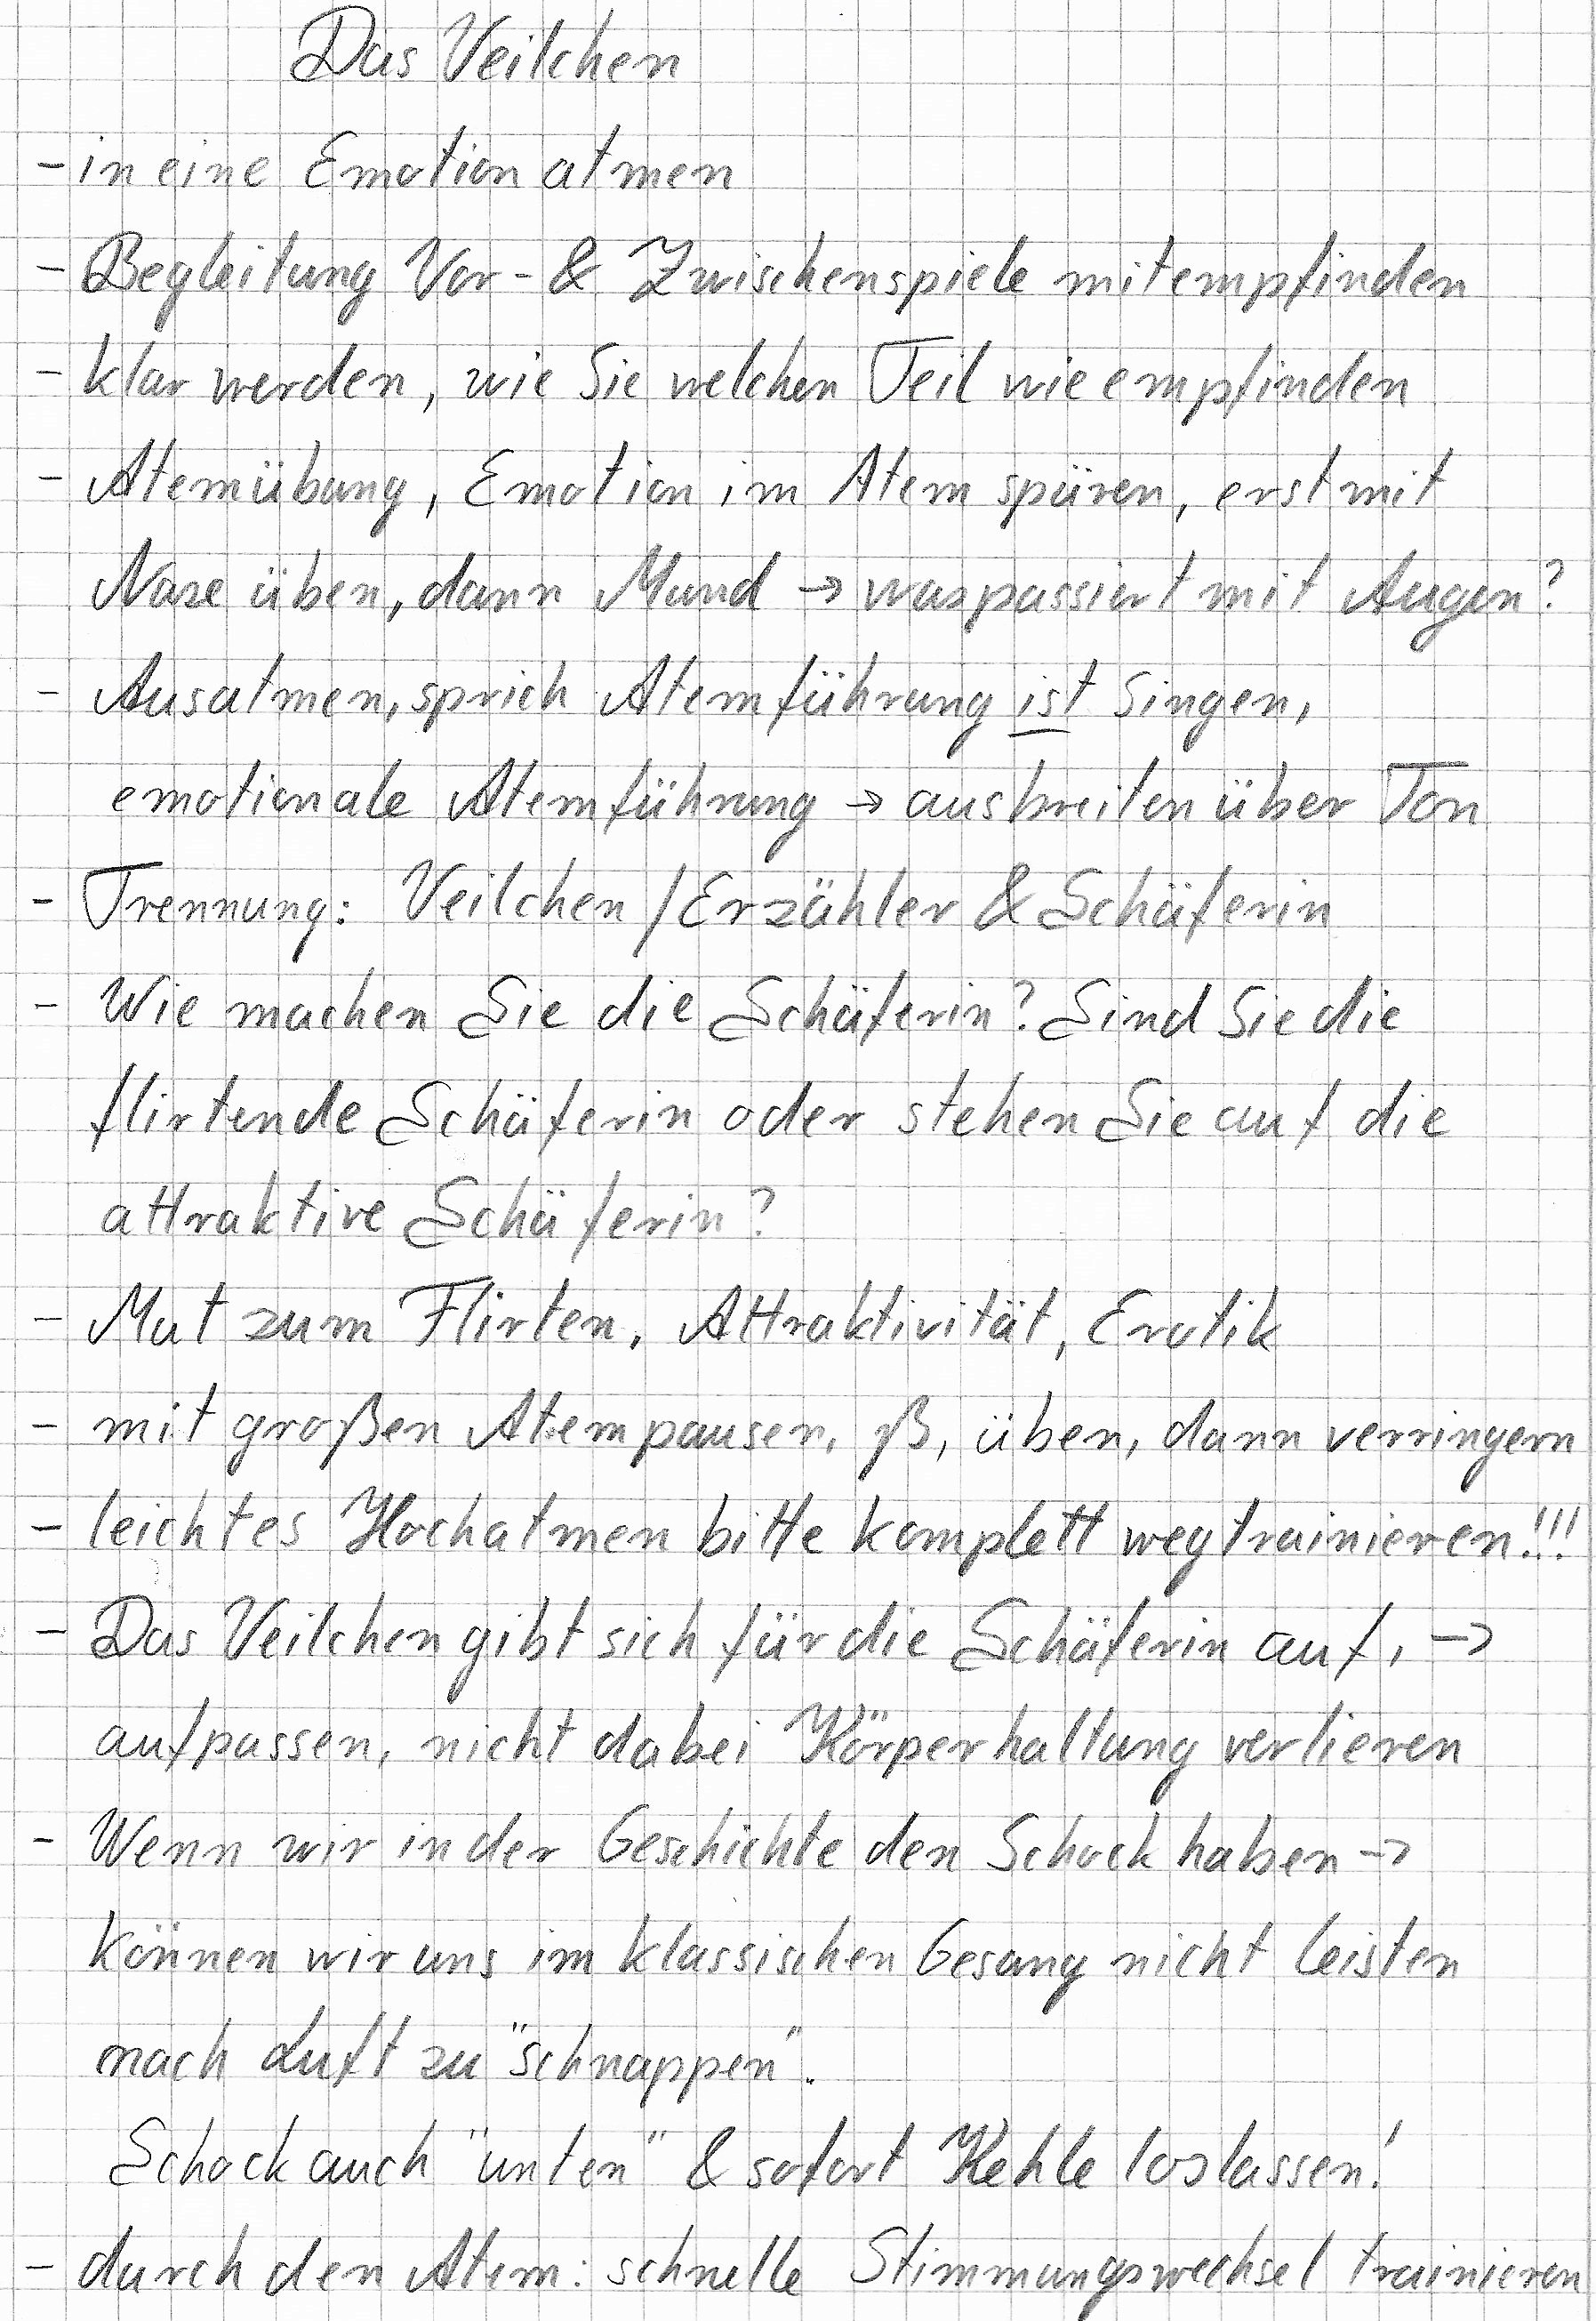 Das Veilchen
- in eine Emotion atmen
- Begleitung Vor- & Zwischenspiele mitempfinden
- klar werden, wie Sie welchen Teil wie empfinden
- Atemübung, Emotion im Atem spüren, erst mit
Nase üben, dann Mund → was passiert mit Augen?
- Ausatmen, sprich Atemführung ist Singen,
emotionale Atemführung → ausbreiten über Ton
- Trennung: Veilchen / Erzähler & Schäferin
- Wie machen Sie die Schäferin? Sind Sie die
flirtende Schäferin oder stehen Sie auf die
attraktive Schäferin?
- Mut zum Flirten, Attraktivität, Erotik
- mit großen Atempausen, ß, üben, dann verringern
- leichtes Hochatmen bitte komplett wegtrainieren!!!
- Das Veilchen gibt sich für die Schäferin auf, →
aufpassen, nicht dabei Körperhaltung verlieren
- Wenn wir in der Geschichte den Schock haben →
können wir uns im klassischen Gesang nicht leisten
nach Luft zu "schnappen".
Schock auch "unten" & sofort Kehle loslassen!
- durch den Atem: schnelle Stimmungswechsel trainieren